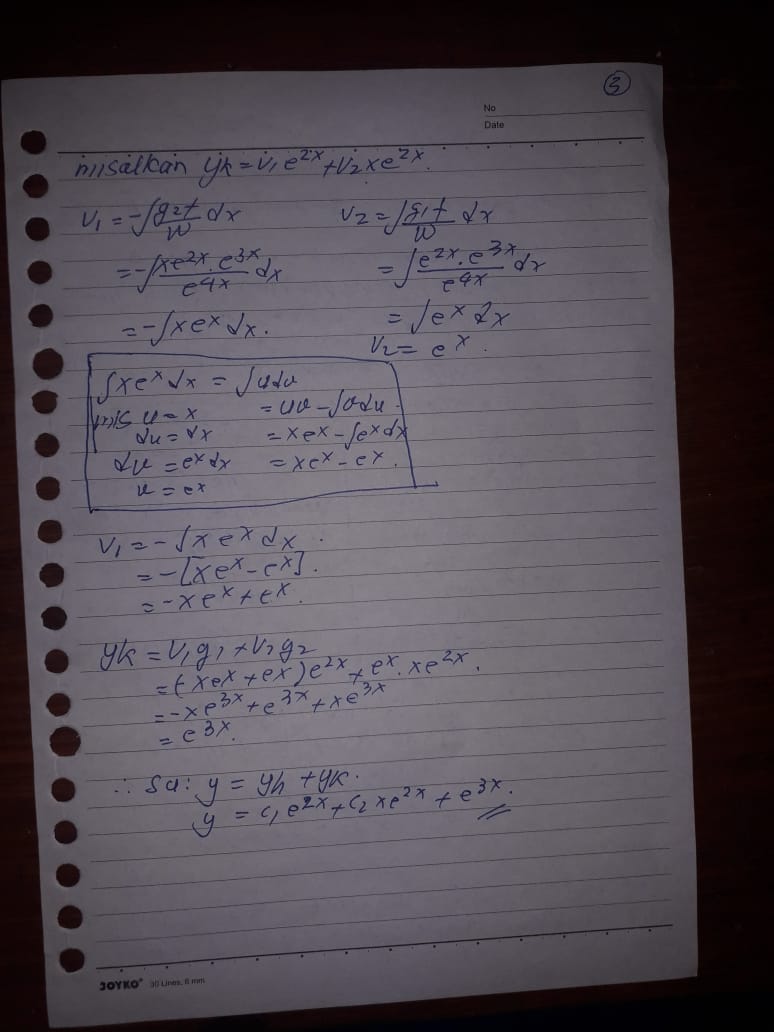 3
No
Date
misalkan yk = v₁e^2x + v₂xe^2x.
v₁ = -∫ g₂f/w dx    v₂ = ∫ g₁f/w dx
= -∫ xe^2x . e^3x / e^4x dx    = ∫ e^2x . e^3x / e^4x dx
= -∫xe^x dx.    = ∫e^x dx
v₂ = e^x.
∫xe^x dx = ∫u dv
mis u = x    = uv - ∫v du.
du = dx    = xe^x - ∫e^x dx
dv = e^x dx    = xe^x - e^x.
v = e^x
v₁ = -∫xe^x dx.
= -[xe^x - e^x].
= -xe^x + e^x.
yk = v₁g₁ + v₂g₂
= (-xe^x + e^x)e^2x + e^x . xe^2x.
= -xe^3x + e^3x + xe^3x
= e^3x.
∴ Su: y = yh + yk.
y = c₁e^2x + c₂xe^2x + e^3x.
JOYKO® 30 Lines, 6 mm